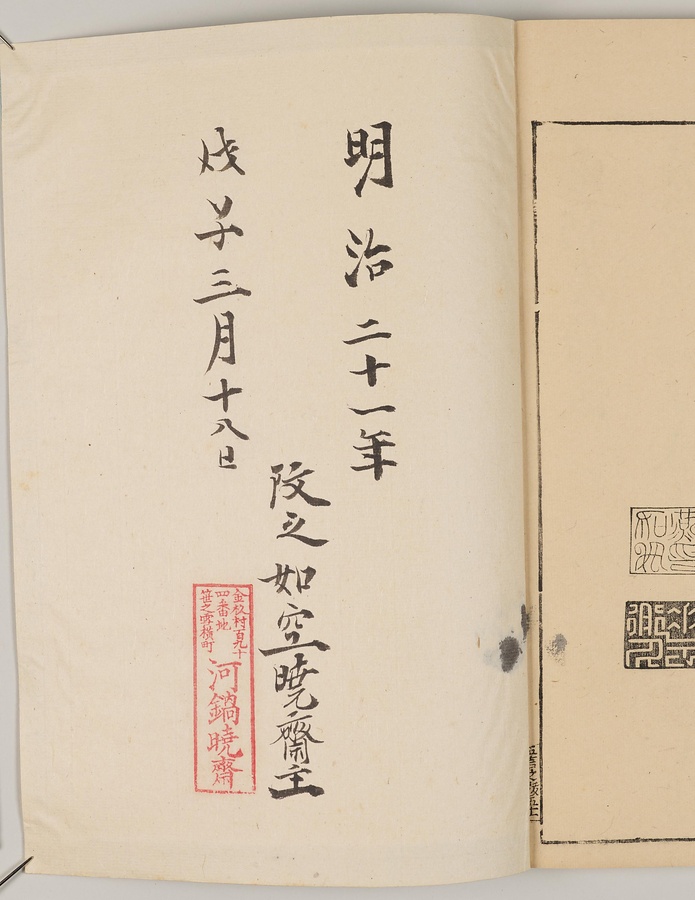 明治二十一年
戊子三月十八日
改之如空暁齋主
金杉村百九十
四番地
笹之雪横町
河鍋暁齋